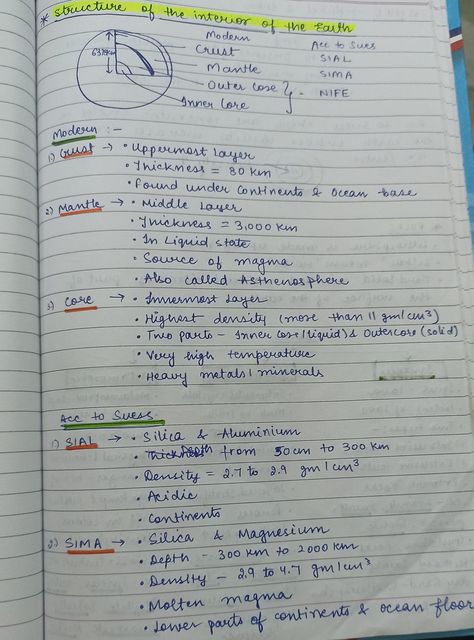 * Structure of the interior of the Earth
Modern Acc to Sues
Crust SIAL
Mantle SIMA
Outer Core } - NIFE
Inner Core
Modern :-
1) Crust → • Uppermost Layer
• Thickness = 80 km
• Found under continents & Ocean base
2) Mantle → • Middle Layer
• Thickness = 3,000 km
• In Liquid state
• Source of magma
• Also called Asthenosphere
3) Core → • Innermost Layer
• Highest density (more than 11 gm/cm³)
• Two parts - Inner Core (liquid) & Outer Core (solid)
• Very high temperature
• Heavy metals / minerals
Acc to Suess
1) SIAL → • Silica & Aluminium
• Depth from 50 cm to 300 km
• Density = 2.7 to 2.9 gm/cm³
• Acidic
• Continents
2) SIMA → • Silica & Magnesium
• Depth - 300 km to 2000 km
• Density - 2.9 to 4.7 gm/cm³
• Molten magma
• Lower parts of continents & ocean floor